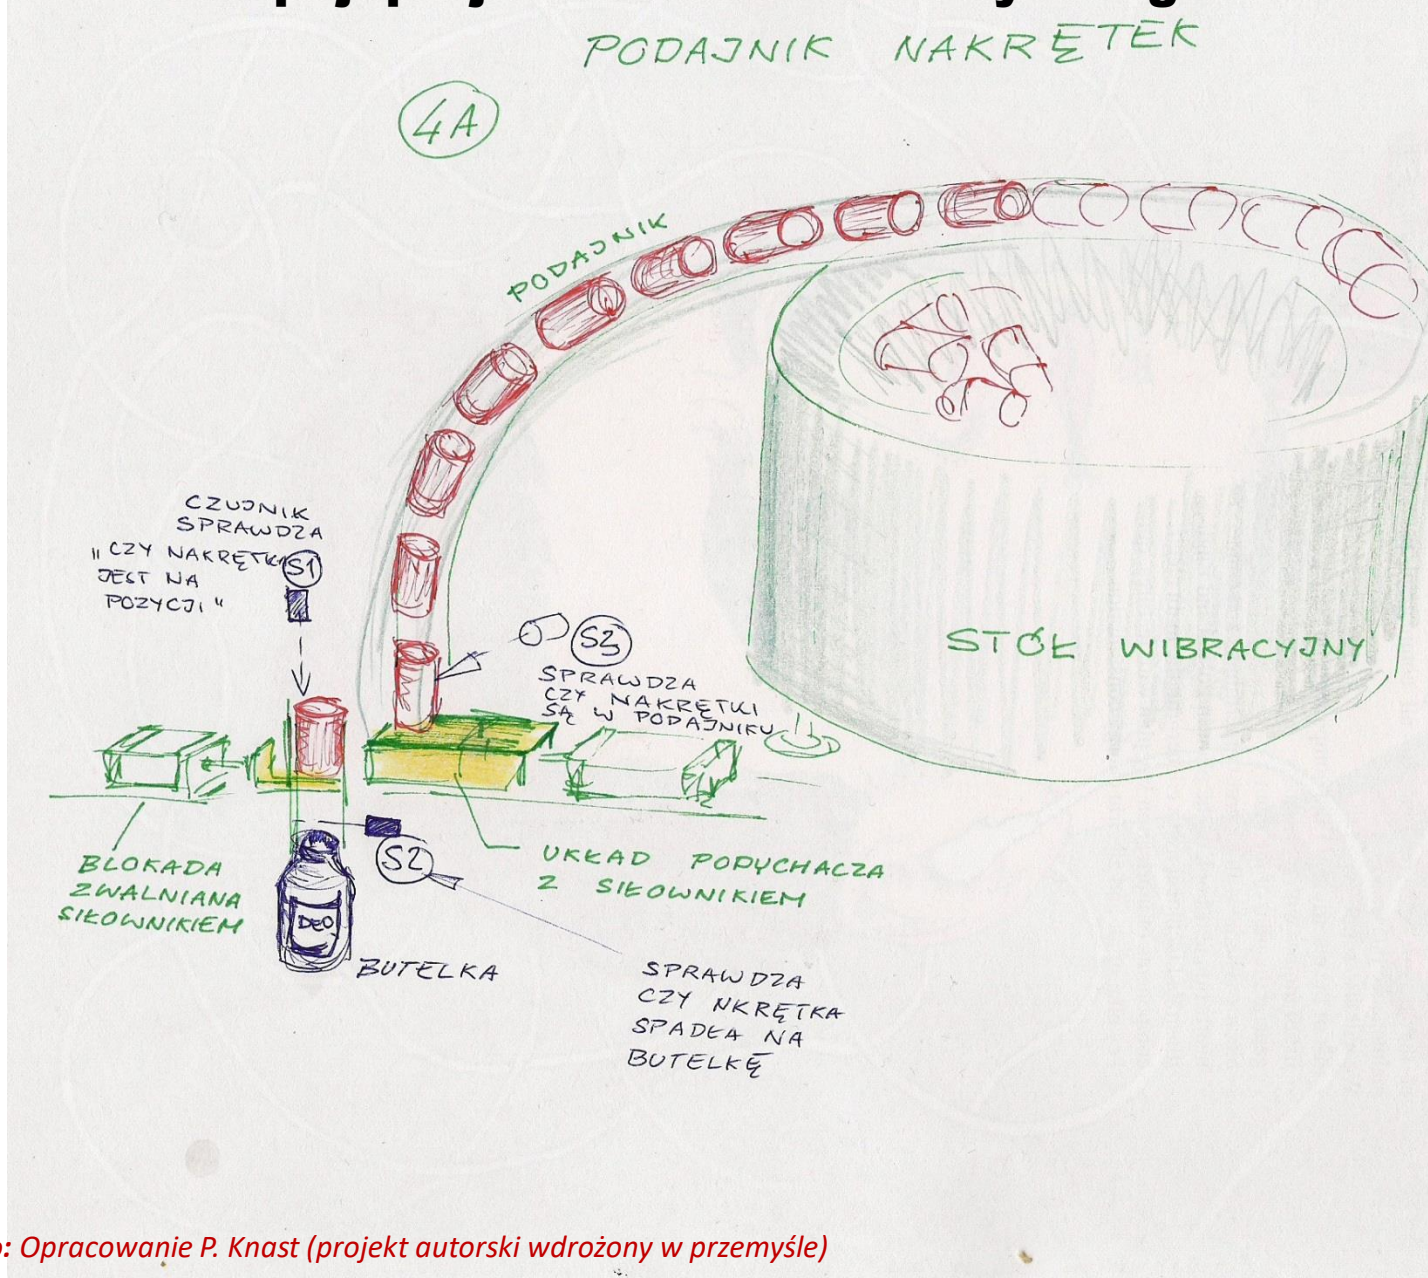 PODAJNIK NAKRĘTEK
4A
PODAJNIK
CZUJNIK
SPRAWDZA
"CZY NAKRĘTKA
JEST NA
POZYCJI"
S1
S3
SPRAWDZA
CZY NAKRĘTKI
SĄ W PODAJNIKU
STÓŁ WIBRACYJNY
BLOKADA
ZWALNIANA
SIŁOWNIKIEM
S2
UKŁAD POPYCHACZA
Z SIŁOWNIKIEM
DEO
BUTELKA
SPRAWDZA
CZY NKRĘTKA
SPADŁA NA
BUTELKĘ
: Opracowanie P. Knast (projekt autorski wdrożony w przemyśle)